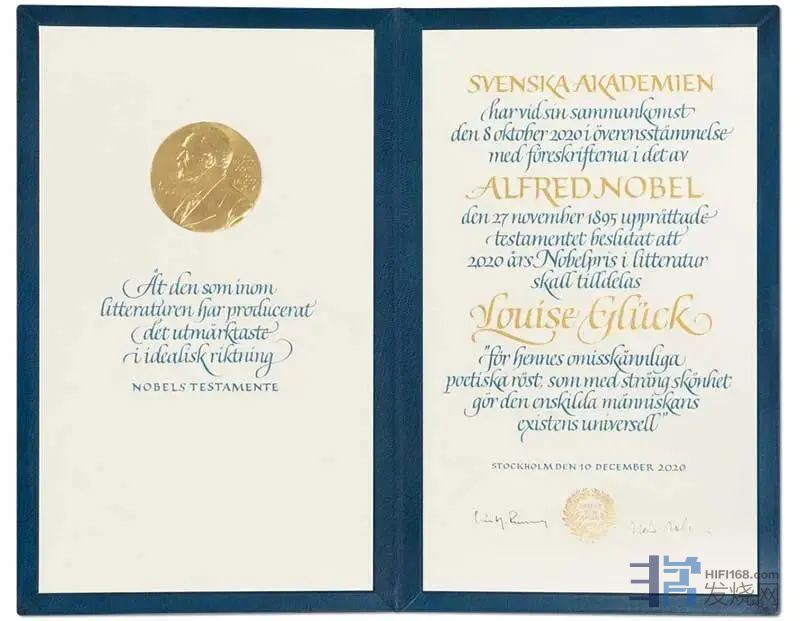 Åt den som inom
litteraturen har producerat
det utmärktaste
i idealisk riktning
NOBELS TESTAMENTE
SVENSKA AKADEMIEN
har vid sin sammankomst
den 8 oktober 2020 i överensstämmelse
med föreskrifterna i det av
ALFRED NOBEL
den 27 november 1895 upprättade
testamentet beslutat att
2020 års Nobelpris i litteratur
skall tilldelas
Louise Glück
"för hennes omisskännliga
poetiska röst, som med sträng skönhet
gör den enskilda människans
existens universell"
STOCKHOLM DEN 10 DECEMBER 2020
HIFI168.com
发烧网